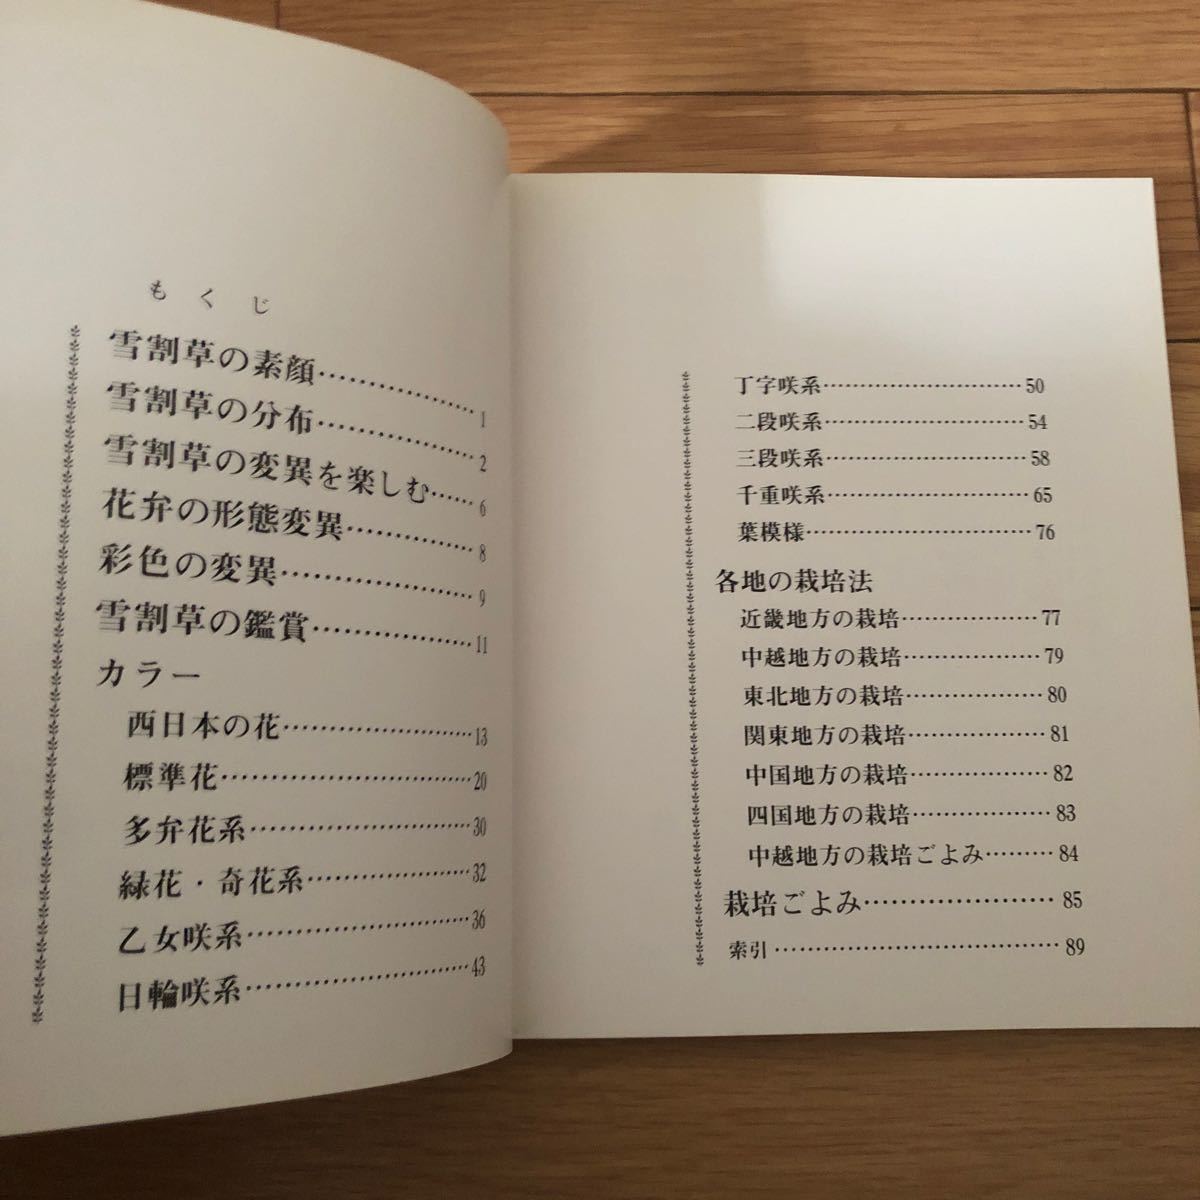 もくじ
雪割草の素顔……………1
雪割草の分布……………2
雪割草の変異を楽しむ……6
花弁の形態変異…………8
彩色の変異………………9
雪割草の鑑賞……………11
カラー
西日本の花………………13
標準花……………………20
多弁花系…………………30
緑花・奇花系……………32
乙女咲系…………………36
日輪咲系…………………43
丁字咲系…………………50
二段咲系…………………54
三段咲系…………………58
千重咲系…………………65
葉模様……………………76
各地の栽培法
近畿地方の栽培…………77
中越地方の栽培…………79
東北地方の栽培…………80
関東地方の栽培…………81
中国地方の栽培…………82
四国地方の栽培…………83
中越地方の栽培ごよみ………84
栽培ごよみ………………85
索引………………………89